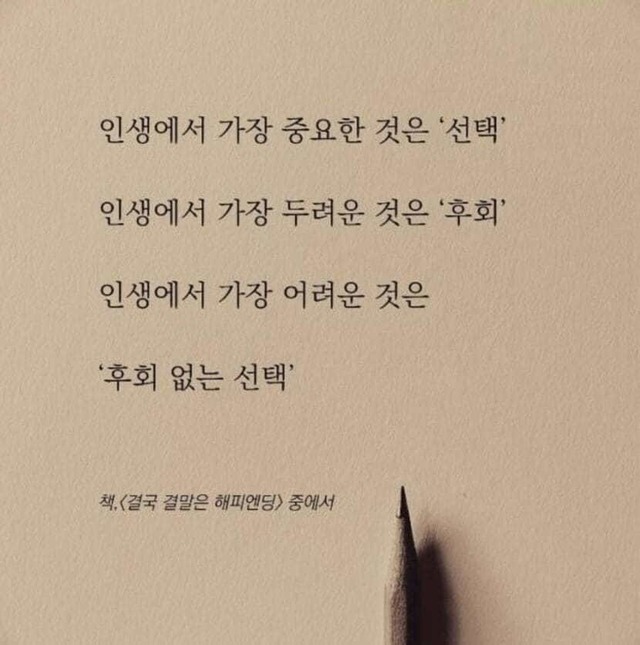 인생에서 가장 중요한 것은 ‘선택’
인생에서 가장 두려운 것은 ‘후회’
인생에서 가장 어려운 것은
‘후회 없는 선택’
책,<결국 결말은 해피엔딩> 중에서